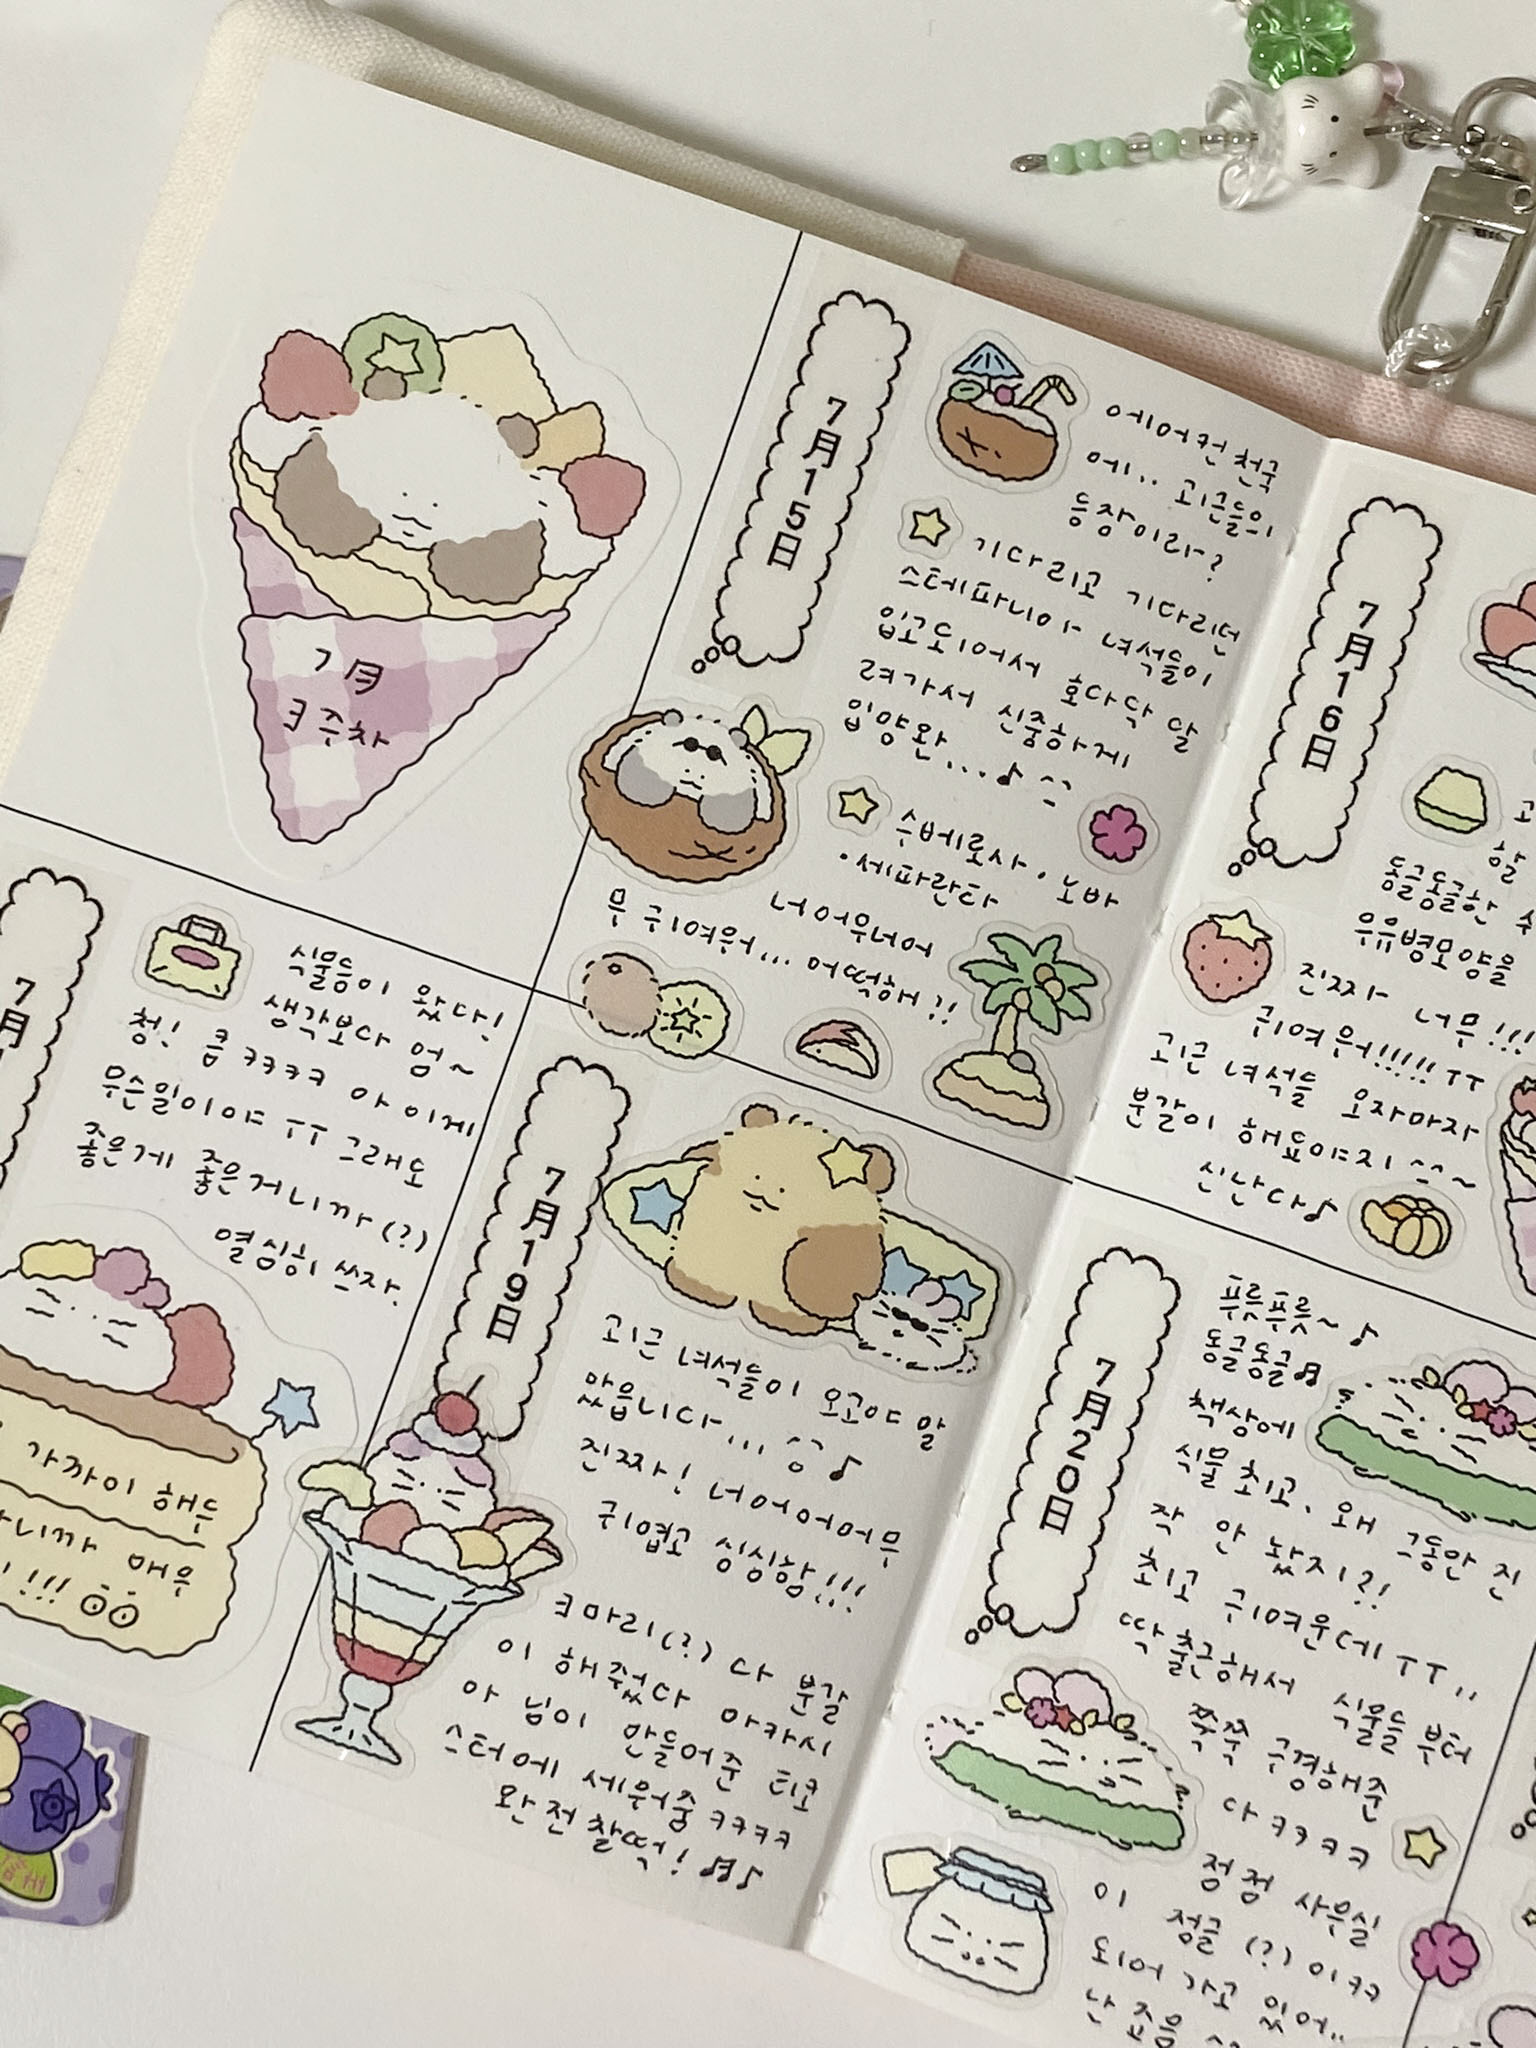 7月
ㅋ주차
7月15日
에이어컨 천국
에.. 귀근들의
등장이라?
기다리고 기다리던
스테파니아 녀석들이
입고되어서 호다닥 달
려가서 신중하게
입양완...♪ ^^
수바이로사・노바
・세파란타
너어우너어
무 귀여워... 어떡해?!
7月16日
동글동글한 수
우유병모양을
진짜아 너무!!!
귀여워!!!!!ㅠㅠ
귀근 녀석들 오자마자
분갈이 해줘야지 ^^~
신난다♪
7月
식물등이 왔다!
생각보다 엄~
청! 큼 ㅋㅋㅋㅋ 아 이게
무슨일이야 ㅜㅜ 그래도
좋은게 좋은거니까(?)
열심히 쓰자.
가까이 해두
니까 매우
!!!
7月19日
귀근 녀석들이 모여 앉
았습니다... ^^ ♪
진짜! 너어어어무
귀엽고 싱싱함!!!
ㅋ마리(?) 다 분갈
이 해줬다 아카시
아 님이 만들어준 티코
스터에 세워줌 ㅋㅋㅋㅋ
완전 찰떡! ♬♪
7月20日
푸릇푸릇~ ♪
동글동글♬
책상에
식물 최고. 왜 그동안 진
작 안 놨지?!
최고 귀여운데 ㅠㅠ..
딱 출근해서 식물들 부터
쭉쭉 구경해준
다 ㅋㅋㅋㅋ
점점 사무실
이 정글(?)이
되어 가고 있어..
난 좋음 ^^